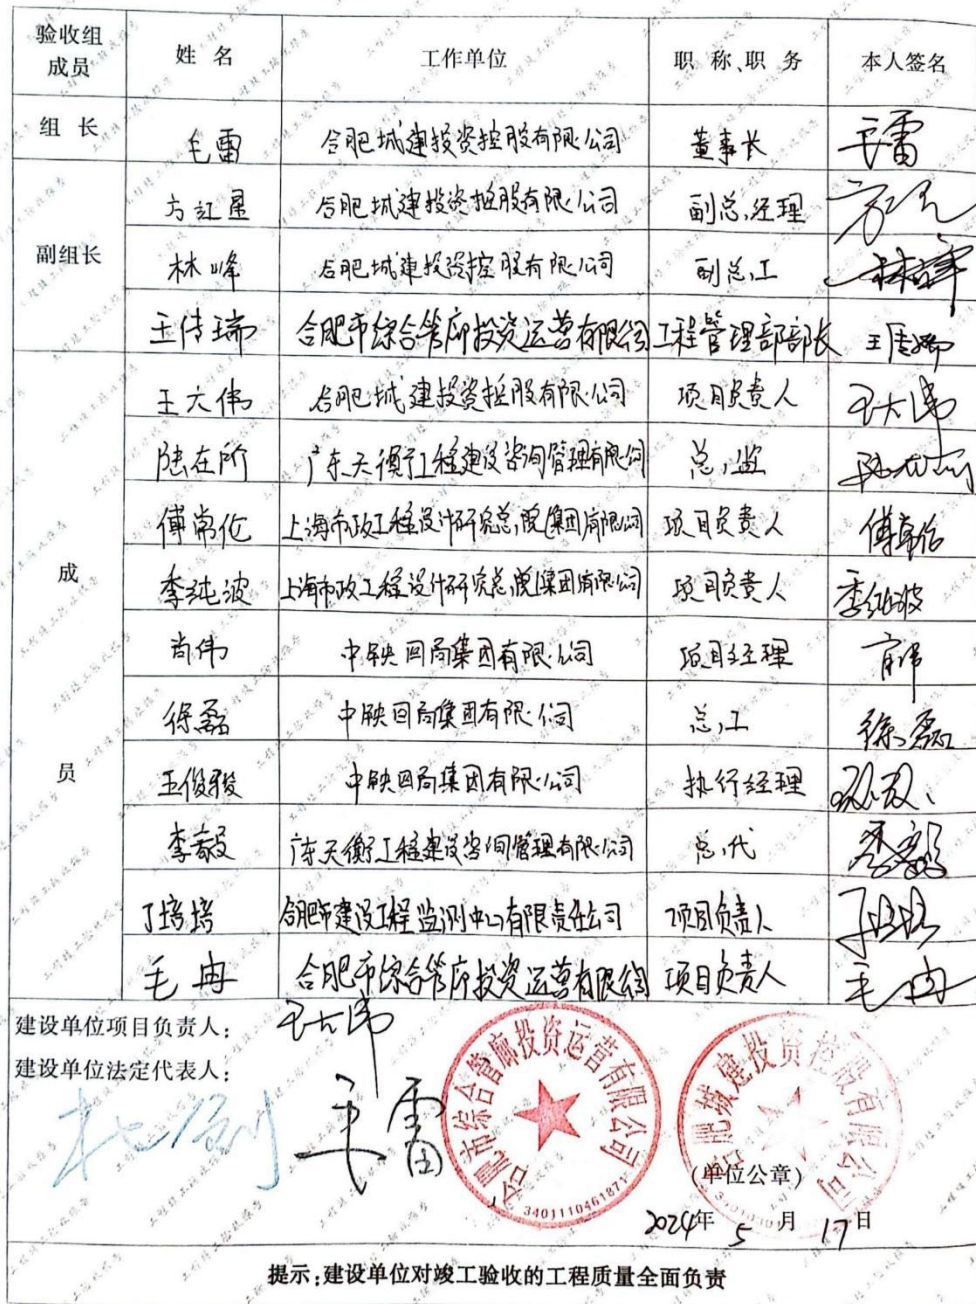 验收组成员 姓 名 工作单位 职 称、职 务 本人签名
组 长 毛雷 合肥城建投资控股有限公司 董事长 毛雷
副组长
方红星 合肥城建投资控股有限公司 副总经理
林峰 合肥城建投资控股有限公司 副总工 林峰
王传瑞 合肥市综合管廊投资运营有限公司 工程管理部部长 王传瑞
成员
王大伟 合肥城建投资控股有限公司 项目负责人 王大伟
陆在所 广东天衡工程建设咨询管理有限公司 总监 陆在所
傅常伦 上海市政工程设计研究总院(集团)有限公司 项目负责人
李纯波 上海市政工程设计研究总院(集团)有限公司 项目负责人 李纯波
尚伟 中铁四局集团有限公司 项目经理 尚伟
徐磊 中铁四局集团有限公司 总工 徐磊
王俊骏 中铁四局集团有限公司 执行经理
李毅 广东天衡工程建设咨询管理有限公司 总代 李毅
丁培培 合肥市建设工程监测中心有限责任公司 项目负责人 丁培培
毛冉 合肥市综合管廊投资运营有限公司 项目负责人 毛冉
建设单位项目负责人: 王大伟
建设单位法定代表人:
毛雷
合肥市综合管廊投资运营有限公司
3401110461871
合肥城建投资控股有限公司
(单位公章)
2024年 5 月 17 日
提示:建设单位对竣工验收的工程质量全面负责